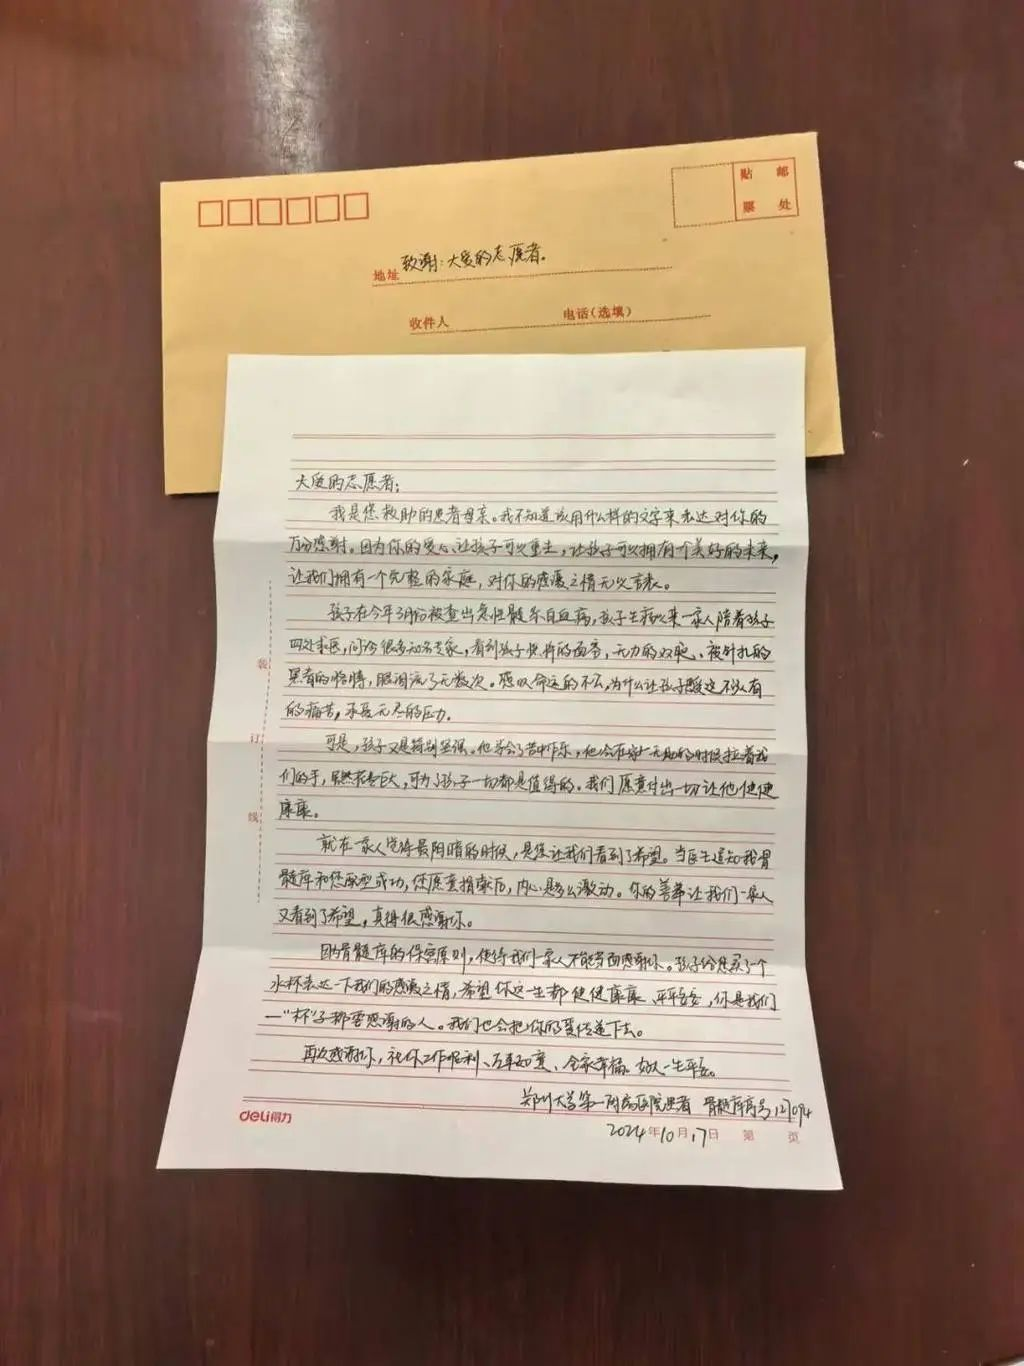 贴 邮
票 处
地址 致谢：大爱的志愿者。
收件人 电话（选填）
大爱的志愿者：
我是您救助的患者母亲。我不知道该用什么样的文字来表达对你的
万分感谢。因为你的爱心、让孩子可以重生，让孩子可以拥有一个美好的未来，
让我们拥有一个完整的家庭，对你的感激之情无以言表。
孩子在今年3月份被查出急性髓系白血病，孩子生病以来一家人陪着孩子
四处求医，问诊很多知名专家，看到孩子 的面容，无力的 、被针扎的
的 ，眼泪流了无数次。感叹命运的不公，为什么让孩子 这不该有
的痛苦，承受无尽的压力。
可是，孩子又是特别坚强。他学会了苦中作乐，他会在 无助的时候拉着我
们的手，虽然花费巨大，可为了孩子一切都是值得的。我们愿意付出一切让他健健
康康。
就在一家人觉得最阴暗的时候，是您让我们看到了希望。当医生通知我骨
髓库和您配型成功，您愿意捐献后，内心是多么激动。你的善举让我们一家人
又看到了希望，真得很感谢你。
因为骨髓库的保密原则，使得我们一家人不能当面感谢你。孩子给您买了一个
水杯表达一下我们的感激之情，希望你这一生都健健康康、平平安安，你是我们
一“杯”子都要感谢的人。我们也会把你的爱传递下去。
再次感谢你，祝你工作顺利、万事如意、全家幸福。好人一生平安。
郑州大学第一附属医院患者 骨髓库高号127094
2024年10月17日 第 页
装
订
线
deli得力